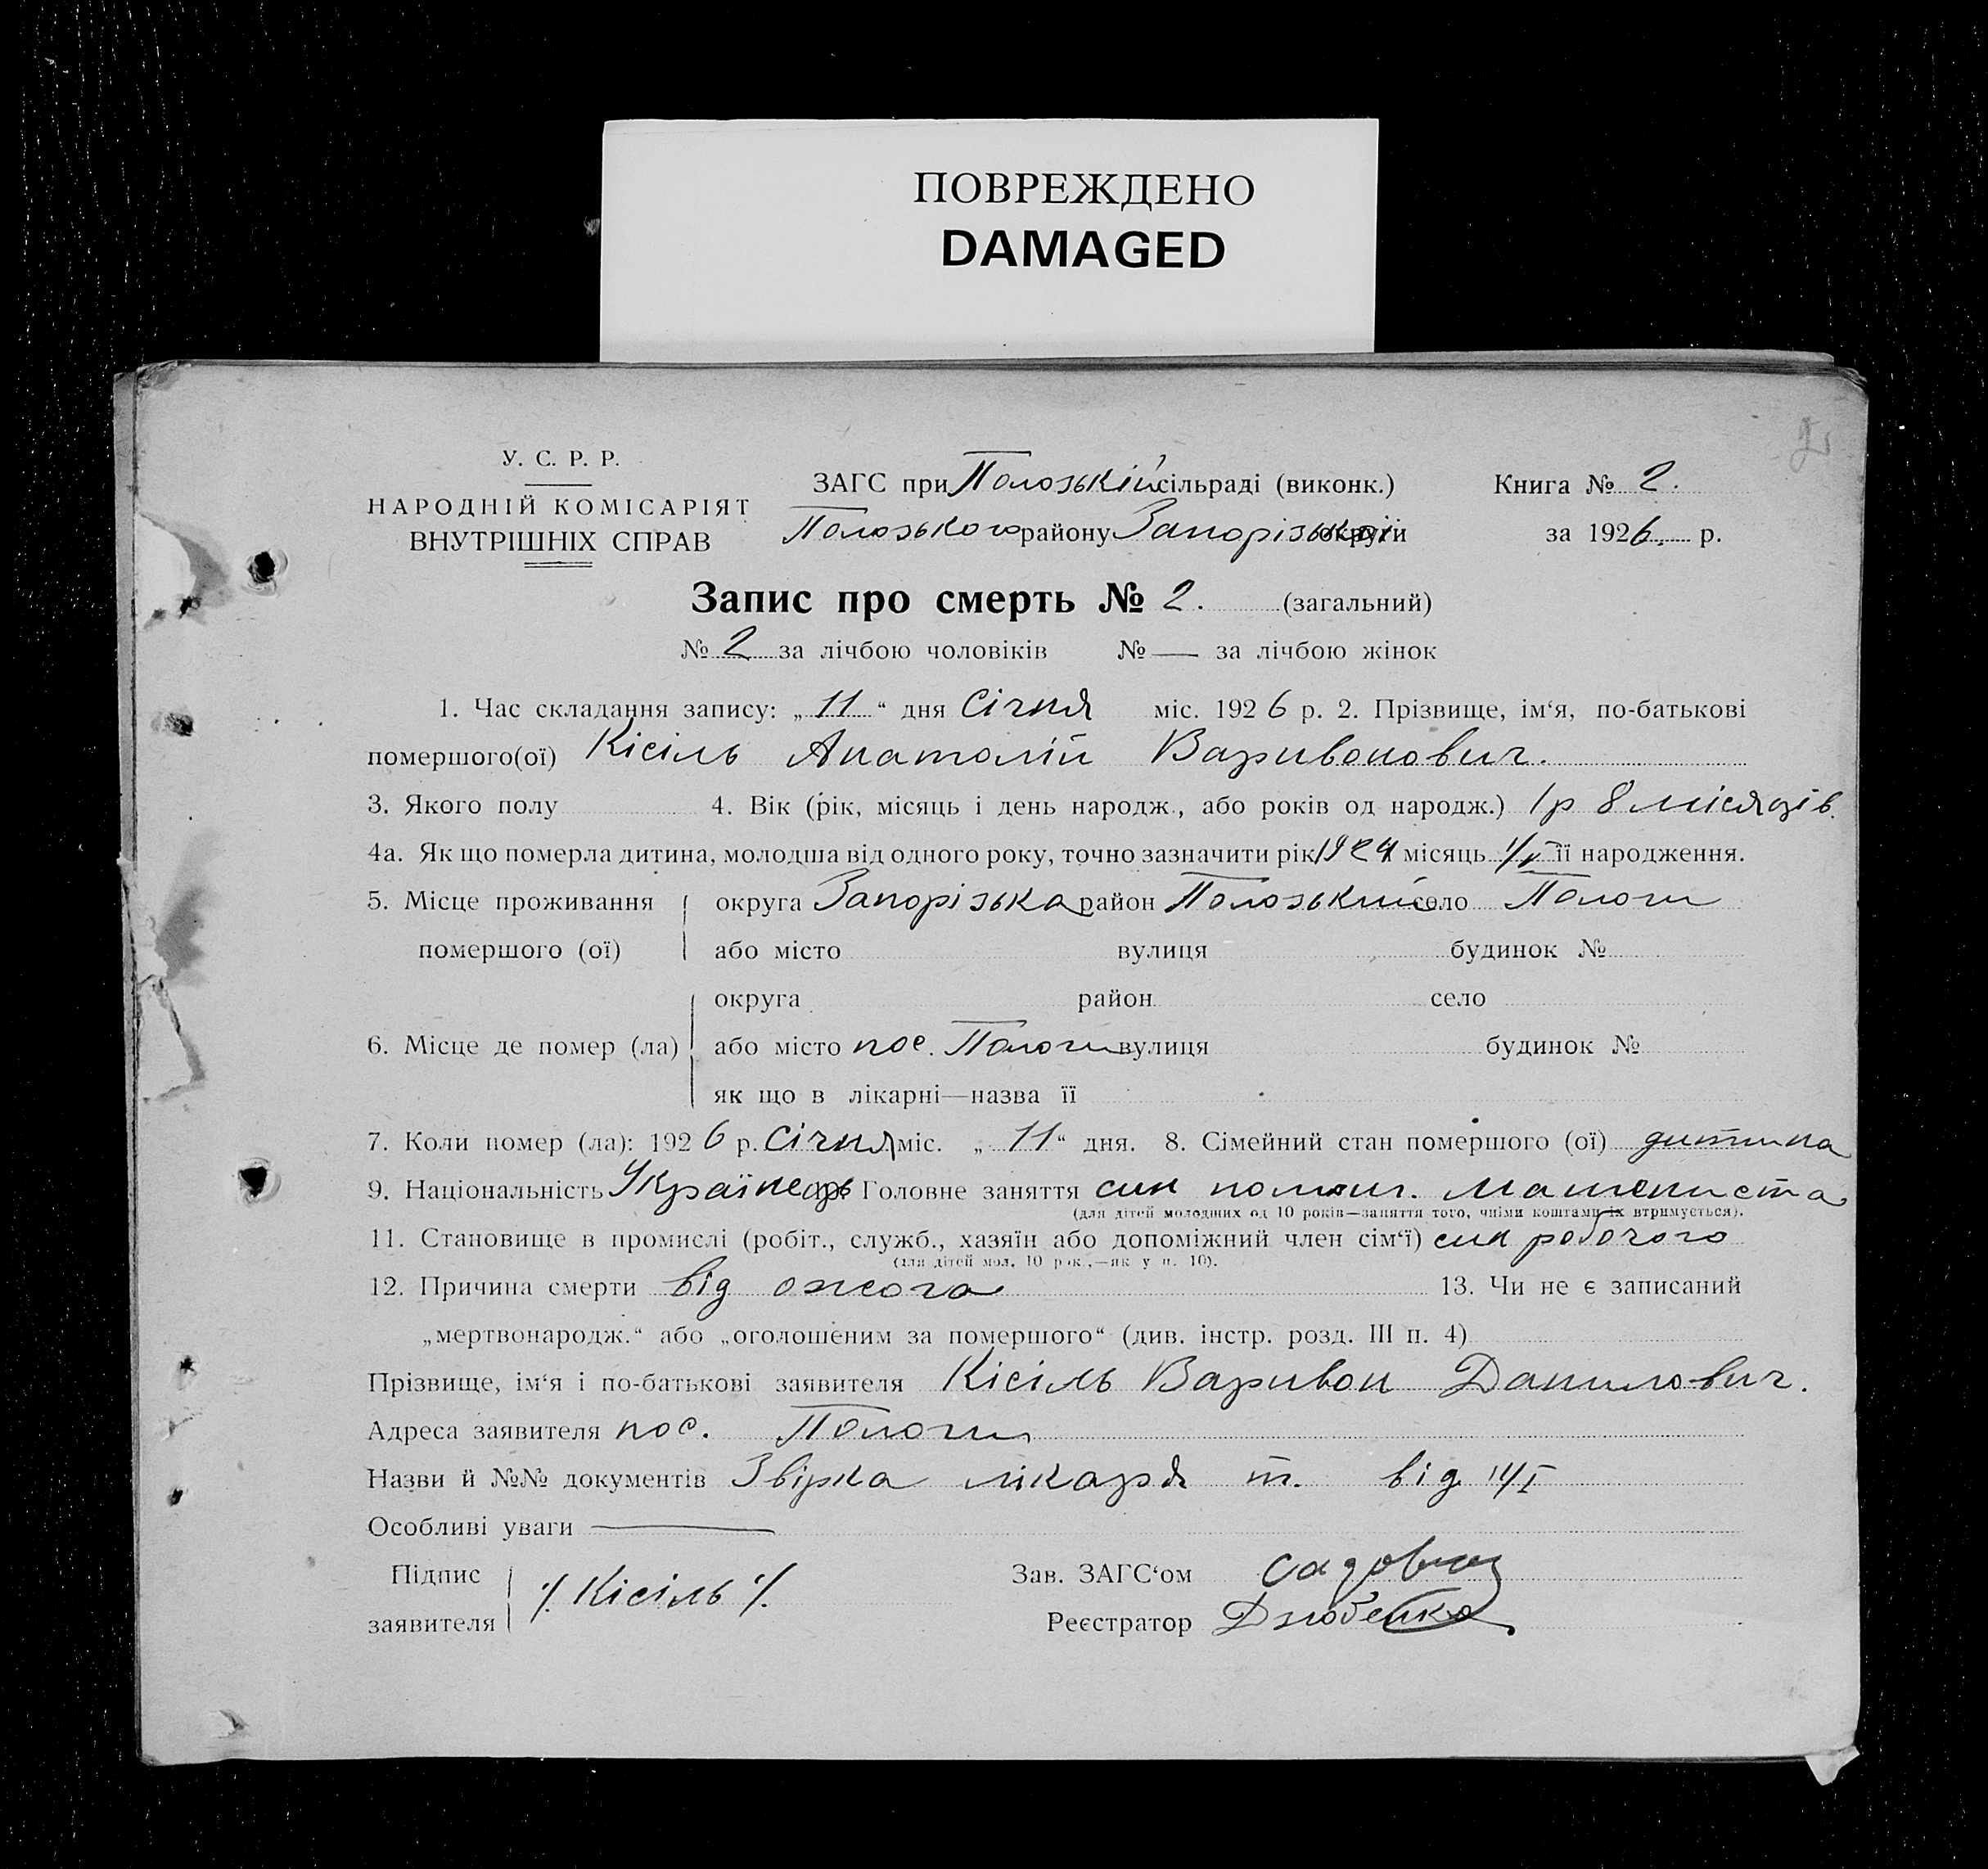 ПОВРЕЖДЕНО
DAMAGED
2
У. С. Р. Р.
НАРОДНІЙ КОМІСАРІЯТ
ВНУТРІШНІХ СПРАВ
ЗАГС при Полозькій сільраді (виконк.)
Полозького району Запорізькоі округи
Книга № 2.
за 1926. р.
Запис про смерть № 2. (загальний)
№ 2 за лічбою чоловіків № — за лічбою жінок
1. Час складання запису: „11“ дня Січня міс. 1926 р. 2. Прізвище, ім‘я, по-батькові
помершого(ої) Кісіль Анатолій Варивонович.
3. Якого полу 4. Вік (рік, місяць і день народж., або років од народж.) 1р 8 місяців.
4а. Як що померла дитина, молодша від одного року, точно зазначити рік 1924 місяць її народження.
5. Місце проживання округа Запорізька район Полозький село Пологи
помершого (ої) або місто вулиця будинок №
округа район село
6. Місце де помер (ла) або місто пос. Пологи вулиця будинок №
як що в лікарні—назва її
7. Коли помер (ла): 1926 р. Січня міс. „11“ дня. 8. Сімейний стан помершого (ої) дитина
9. Національність Українець Головне заняття син машиниста
(для дітей молодших од 10 років—заняття того, чиїми коштами їх втримується).
11. Становище в промислі (робіт., служб., хазяїн або допоміжний член сім‘ї) син робочого
(для дітей мол. 10 рок.,—як у п. 10).
12. Причина смерти від ожога 13. Чи не є записаний
„мертвонародж.“ або „оголошеним за помершого“ (див. інстр. розд. III п. 4)
Прізвище, ім‘я і по-батькові заявителя Кісіль Варивон Данилович.
Адреса заявителя пос. Пологи
Назви й №№ документів Звірка лікаря т. від 11/I
Особливі уваги —
Підпис
заявителя ./. Кісіль ./.
Зав. ЗАГС‘ом
Реєстратор